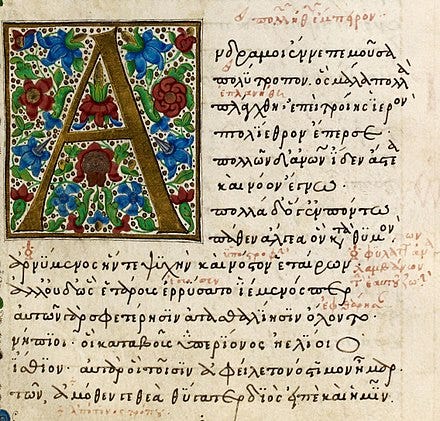 Ἄνδρα μοι ἔννεπε μοῦσα
ἐπλανήθη
πολύτροπον· ὃς μάλα πολλὰ
πλάγχθη· ἐπεὶ τροίης ἱερὸν
πτολίεθρον ἔπερσε·
πολλῶν δ' ἀνῶν ἴδεν ἄστεα
καὶ νόον ἔγνω·
πολλὰ δ' ὅγ' ἐν πόντω
πάθεν ἄλγεα ὃν κατὰ θυμόν·
ἀρνύμενος ἥν τε ψυχὴν καὶ νόστον ἑταίρων
ἀλλ' οὐδ' ὣς ἑτάρους ἐρρύσατο ἱέμενός περ
αὐτῶν γὰρ σφετέρησιν ἀτασθαλίησιν ὄλοντο·
νήπιοι· οἳ κατὰ βοῦς ὑπερίονος ἠελίοιο
ἤσθιον· αὐτὰρ ὁ τοῖσιν ἀφείλετο νόστιμον ἦμαρ·
τῶν ἁμόθεν γε θεὰ θύγατερ διὸς εἰπὲ καὶ ἡμῖν·